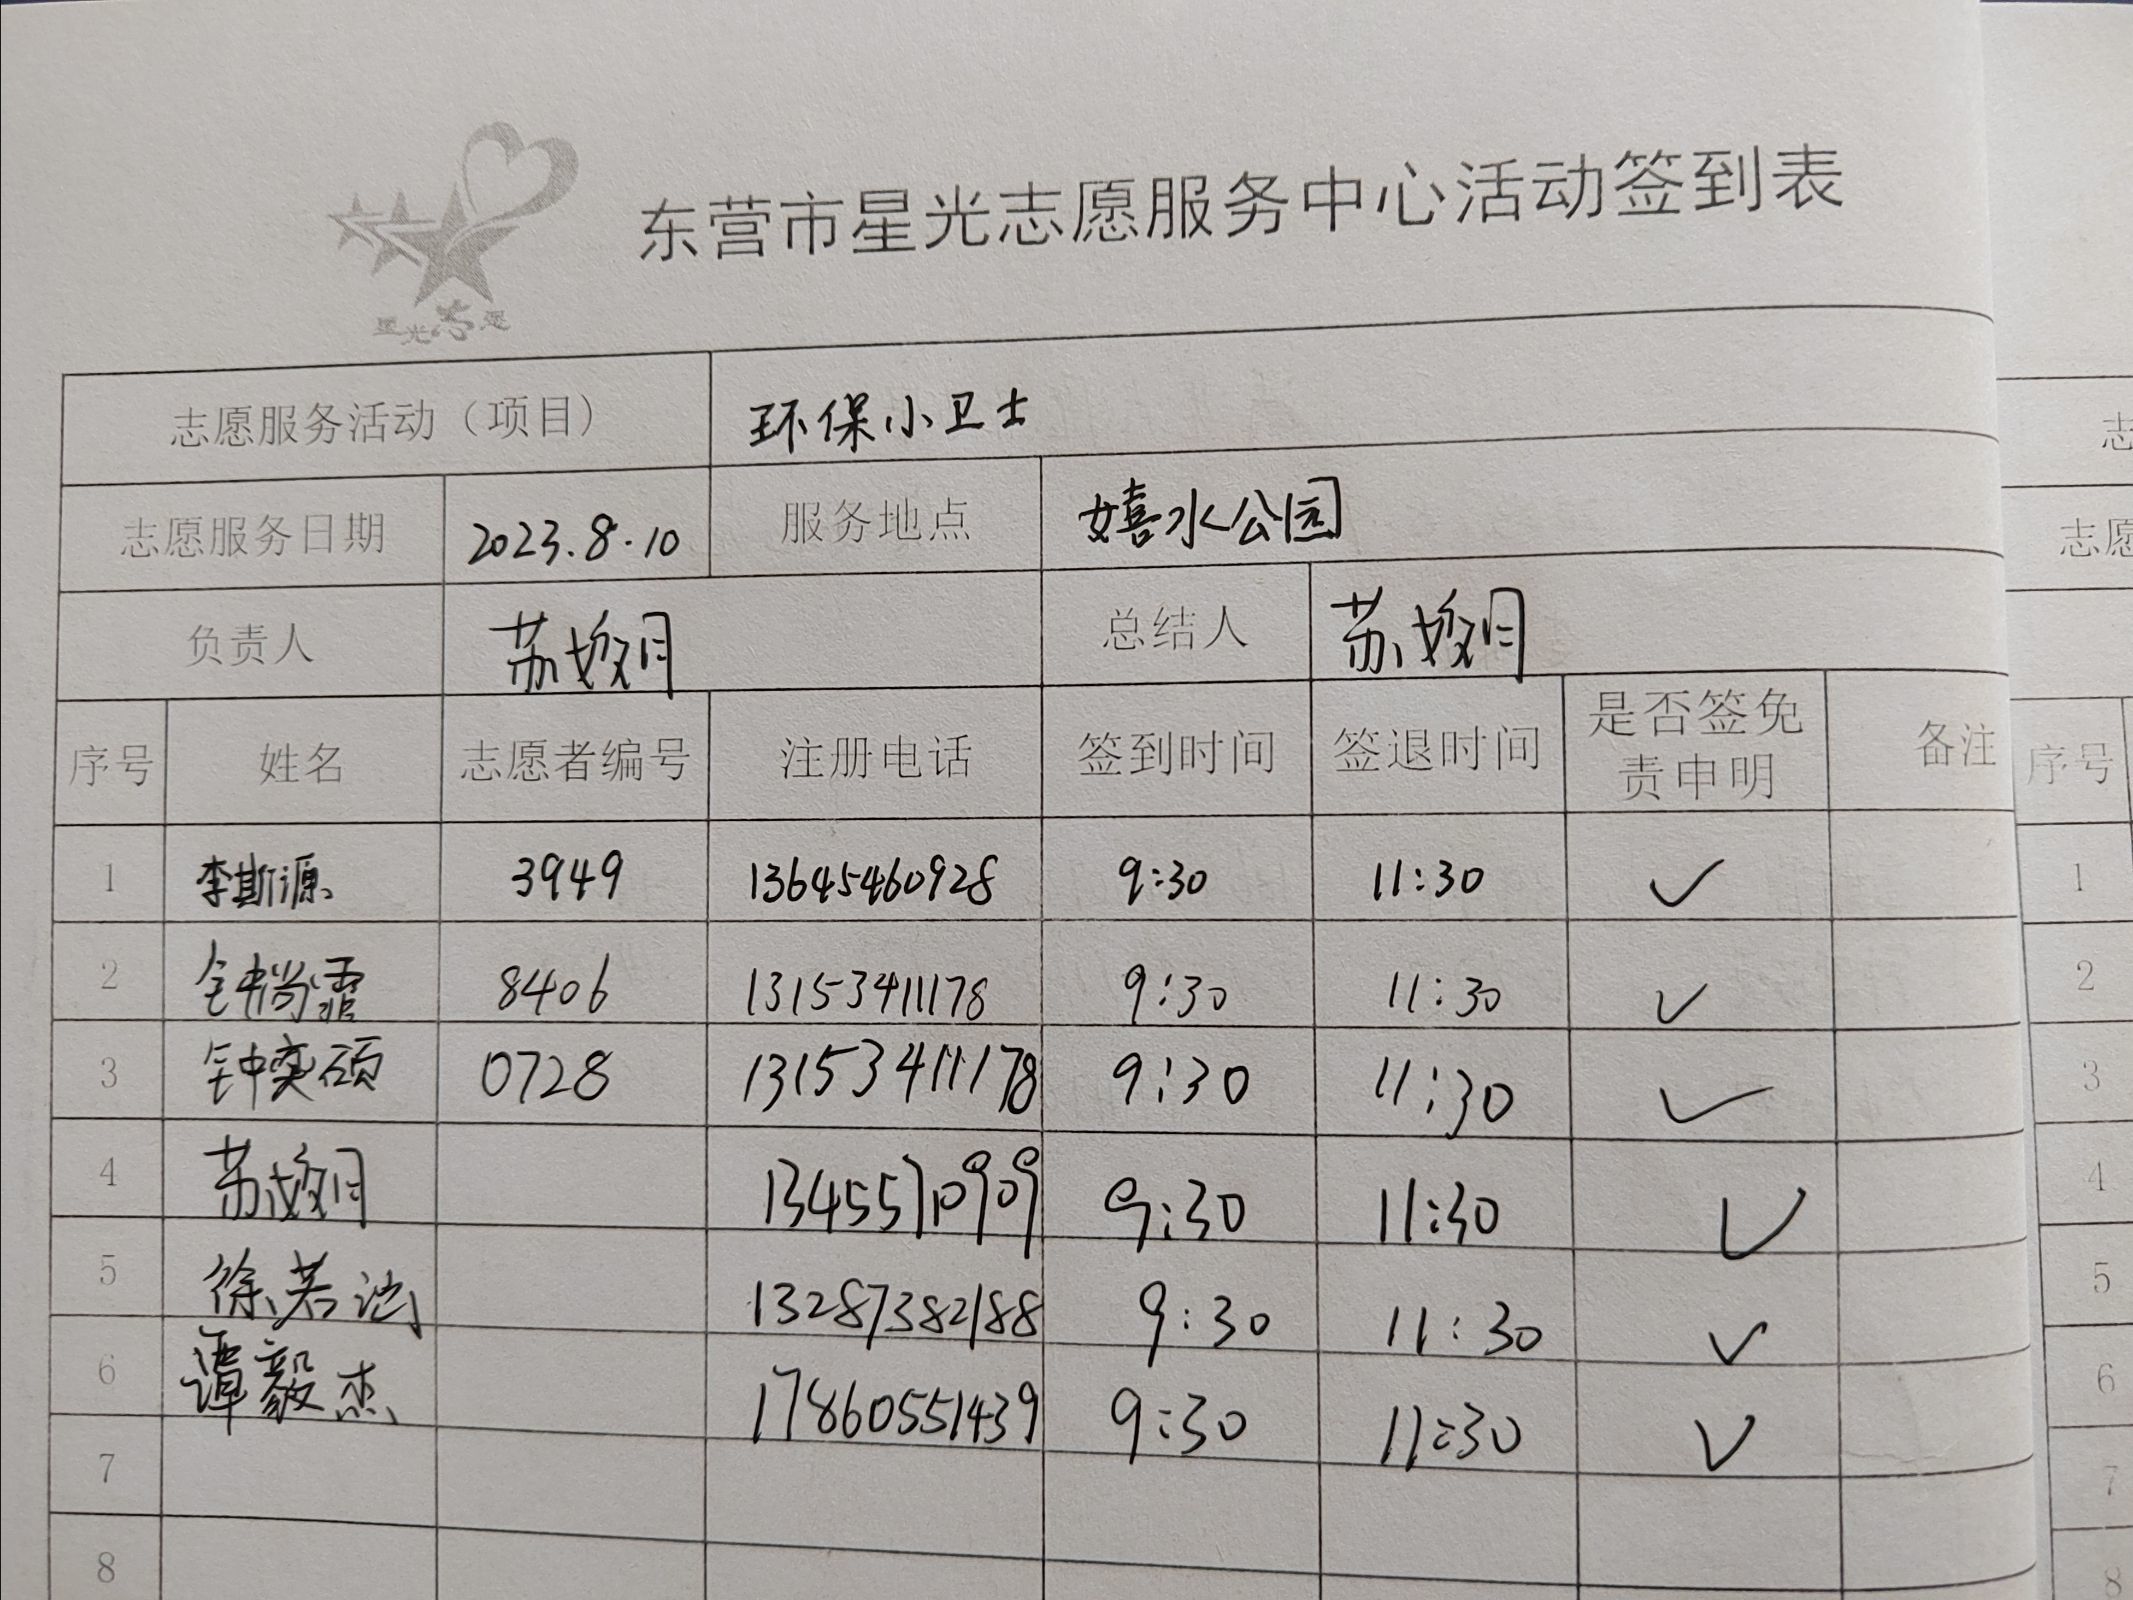 东营市星光志愿服务中心活动签到表
星光志愿
志愿服务活动（项目） 环保小卫士
志愿服务日期 2023.8.10 服务地点 嬉水公园
负责人 苏姣月 总结人 苏姣月
序号 姓名 志愿者编号 注册电话 签到时间 签退时间 是否签免责申明 备注
1 李斯源 3949 13645460928 9:30 11:30 ✓
2 钟尚霏 8406 13153411178 9:30 11:30 ✓
3 钟奕硕 0728 13153411178 9:30 11:30 ✓
4 苏姣月 13455710909 9:30 11:30 ✓
5 徐若 13287382188 9:30 11:30 ✓
6 谭毅杰 17860551439 9:30 11:30 ✓
7
8
志
志愿
序号
1
2
3
4
5
6
7
8